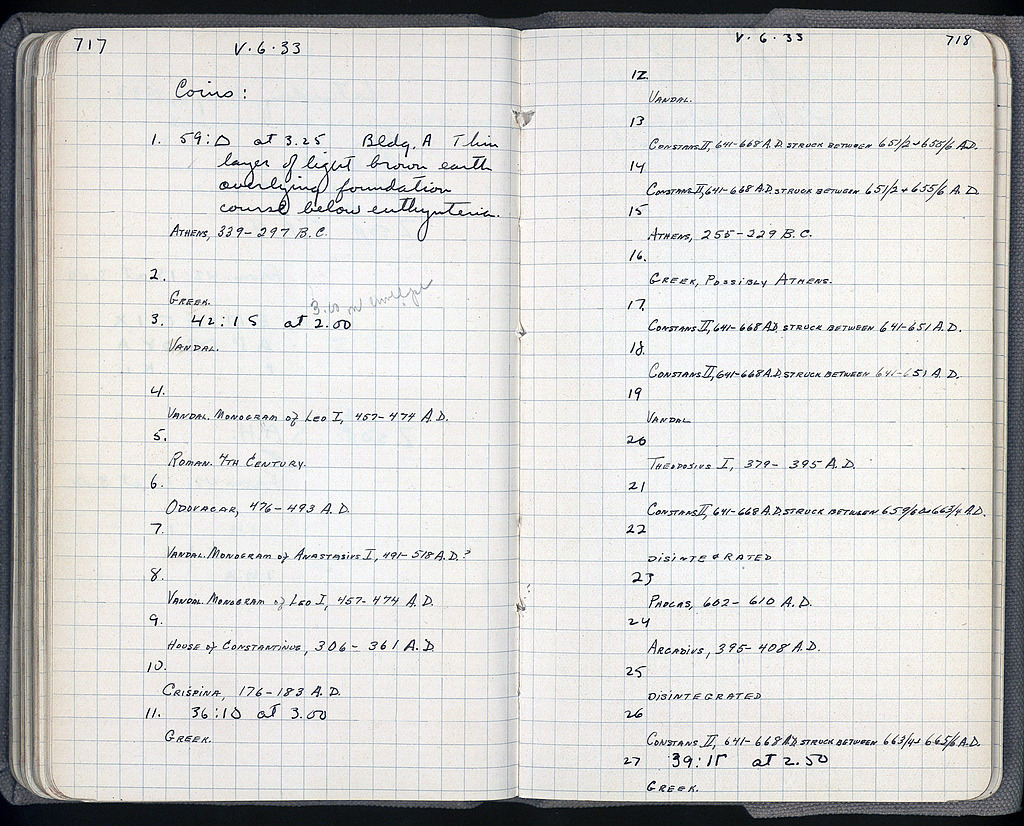 717
V.6.33
Coins:
1. 59:D at 3.25 Bldg. A Thin
layer of light brown earth
overlying foundation
course below euthynteria.
ATHENS, 339-297 B.C.
2.
GREEK.
3.00 on envelope
3. 42:IS at 2.00
VANDAL.
4.
VANDAL. MONOGRAM of LEO I, 457-474 A.D.
5.
ROMAN. 4TH CENTURY.
6.
ODOVACAR, 476-493 A.D.
7.
VANDAL. MONOGRAM of ANASTASIUS I, 491-518 A.D.?
8.
VANDAL. MONOGRAM of LEO I, 457-474 A.D.
9.
HOUSE of CONSTANTINUS, 306-361 A.D.
10.
CRISPINA, 176-183 A.D.
11. 36:ID at 3.00
GREEK.
V.6.33
718
12.
VANDAL.
13
CONSTANS II, 641-668 A.D. STRUCK BETWEEN 651/2 + 655/6 A.D.
14
CONSTANS II, 641-668 A.D. STRUCK BETWEEN 651/2 + 655/6 A.D
15
ATHENS, 255-229 B.C.
16.
GREEK, POSSIBLY ATHENS.
17.
CONSTANS II, 641-668 A.D. STRUCK BETWEEN 641-651 A.D.
18.
CONSTANS II, 641-668 A.D. STRUCK BETWEEN 641-651 A.D.
19
VANDAL
20
THEODOSIUS I, 379-395 A.D.
21
CONSTANS II, 641-668 A.D. STRUCK BETWEEN 659/60+663/4 A.D.
22
DISINTEGRATED
23
PHOCAS, 602-610 A.D.
24
ARCADIUS, 395-408 A.D.
25
DISINTEGRATED
26
CONSTANS II, 641-668 A.D. STRUCK BETWEEN 663/4+ 665/6 A.D.
27 39:IΓ at 2.50
GREEK.